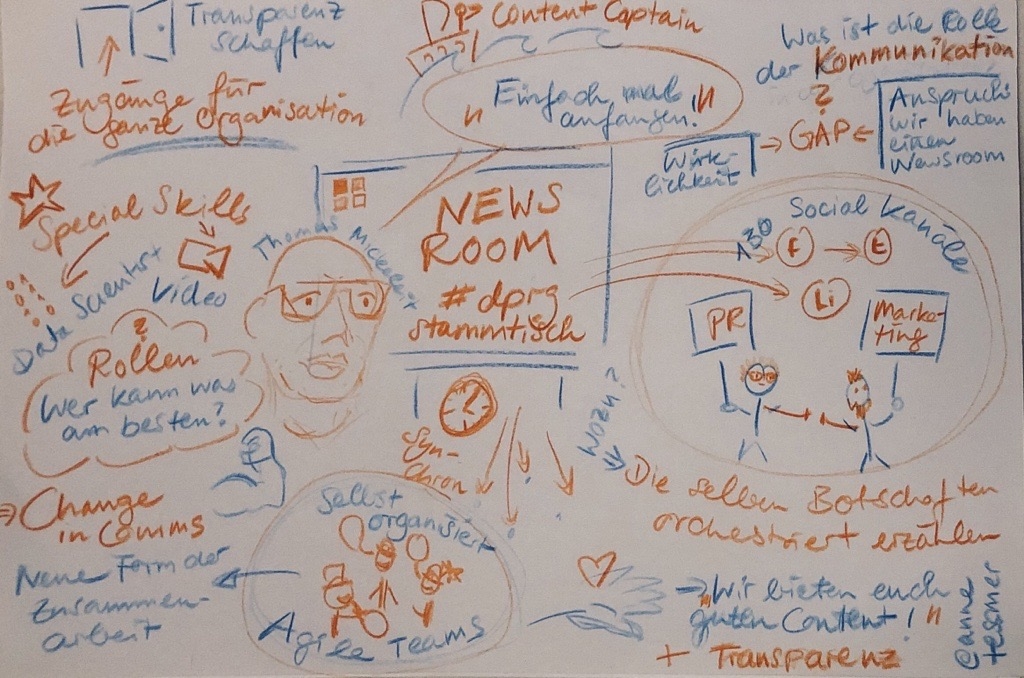 Transparenz
schaffen
Zugänge für
die ganze Organisation
Content Captain
"Einfach mal
anfangen!"
Was ist die Rolle
der Kommunikation
?
Anspruch:
Wir haben
einen
Newsroom
GAP
Wirk-
lichkeit
Special Skills
Data Scientist
Video
?
Rollen
Wer kann was
am besten?
Thomas
NEWS
ROOM
#dprg
stammtisch
Syn-
chron
Social Kanäle
F
E
Li
PR
Marke-
ting
Wozu?
Die selben Botschaften
orchestriert erzählen
Change
in Comms
Neue Form der
Zusammen-
arbeit
Selbst
organisiert
Agile Teams
"Wir bieten euch
guten Content!"
+ Transparenz
@anne
tessmer